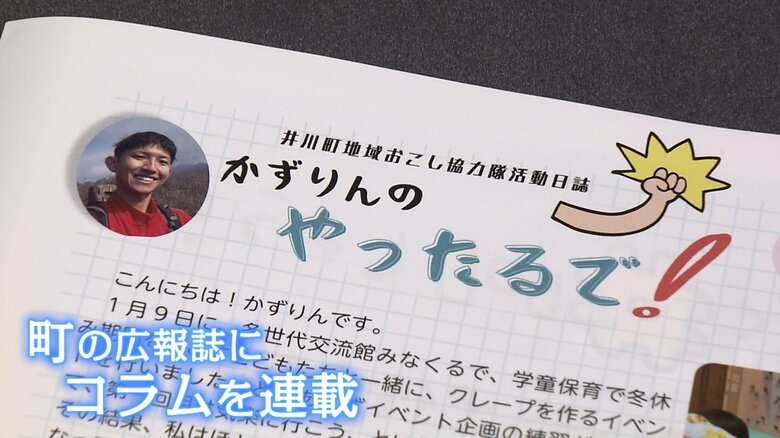 井川町地域おこし協力隊活動日誌
かずりんの
やったるで!
こんにちは!かずりんです。
1月9日に、多世代交流館みなくるで、学童保育で冬休
み期
こどもたち
一緒に、クレープを作るイベン
行いました
イベント企画の練習
第
回
気楽に行こう、と
その結果、私はほと
町の広報誌に
コラムを連載